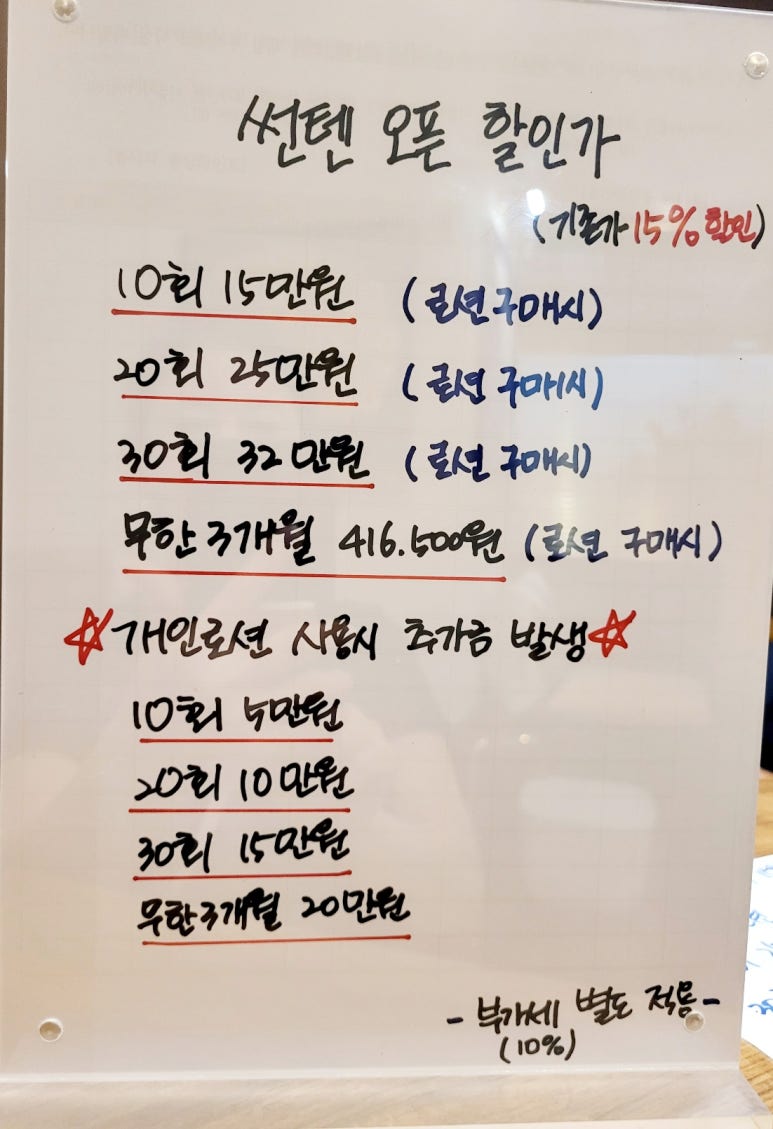 썬텐 오픈 할인가
(기존가 15% 할인)
10회 15만원 (로션 구매시)
20회 25만원 (로션 구매시)
30회 32만원 (로션 구매시)
무한 3개월 416.500원 (로션 구매시)
☆개인로션 사용시 추가금 발생☆
10회 5만원
20회 10만원
30회 15만원
무한 3개월 20만원
- 부가세 별도 적용-
(10%)